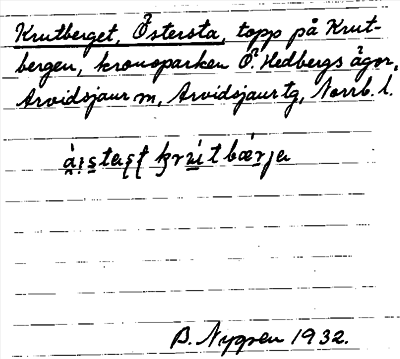 Krutberget, Östersta, topp på Krut-
bergen, kronoparken Ö. Hedbergs ägor,
Arvidsjaur sn, Arvidsjaur tg, Norrb. l.
B. Nygren 1932.